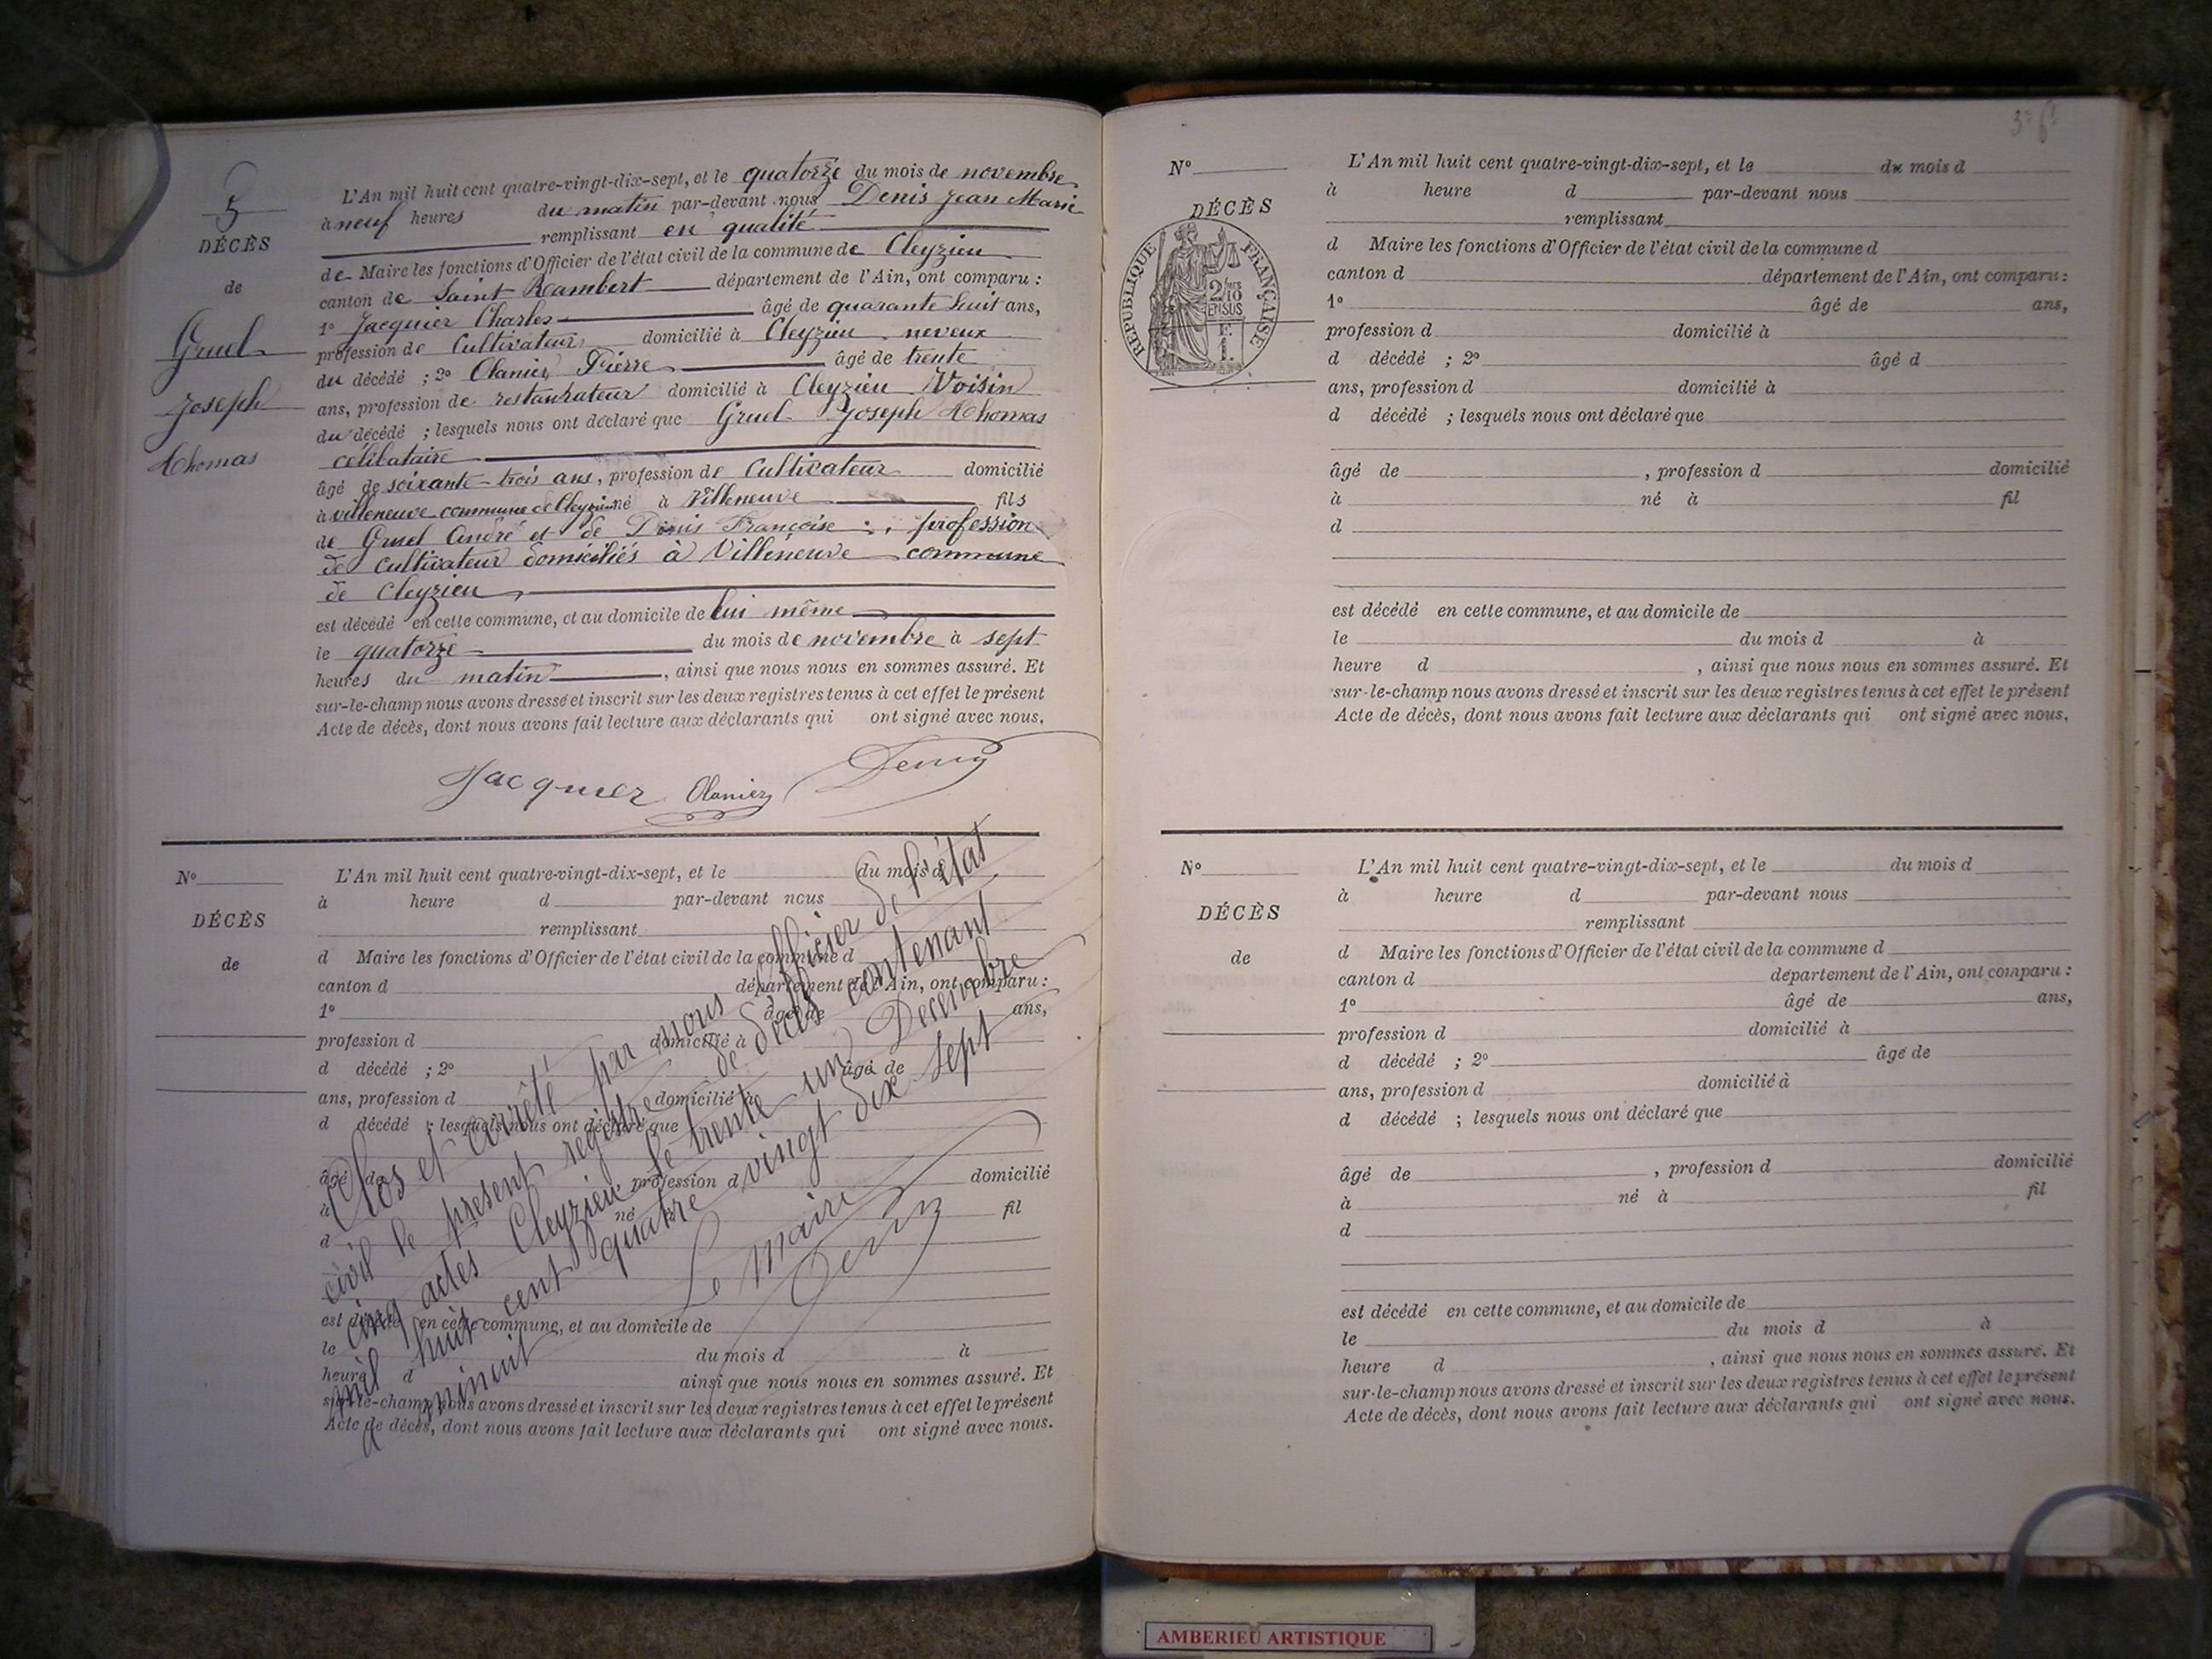 5
DÉCÈS
de
Gruel
Joseph
Thomas
L'An mil huit cent quatre-vingt-dix-sept, et le quatorze du mois de novembre
à neuf heures du matin par-devant nous Denis Jean Marie
remplissant en qualité
de Maire les fonctions d'Officier de l'état civil de la commune de Cleyzieu
canton de Saint Rambert département de l'Ain, ont comparu :
1º Jacquier Charles âgé de quarante huit ans,
profession de Cultivateur domicilié à Cleyzieu neveux
du décédé ; 2º Olanier Pierre âgé de trente
ans, profession de restaurateur domicilié à Cleyzieu Voisin
du décédé ; lesquels nous ont déclaré que Gruel Joseph Thomas
célibataire
âgé de soixante-trois ans, profession de Cultivateur domicilié
à villeneuve commune de Cleyzieu né à Villeneuve fils
de Gruel André et de Denis Françoise profession
de Cultivateur domiciliés à Villeneuve commune
de Cleyzieu
est décédé en cette commune, et au domicile de lui même
le quatorze du mois de novembre à sept
heures du matin, ainsi que nous nous en sommes assuré. Et
sur-le-champ nous avons dressé et inscrit sur les deux registres tenus à cet effet le présent
Acte de décès, dont nous avons fait lecture aux déclarants qui ont signé avec nous.
Jacquier Olanier Denis
Nº
DÉCÈS
de
L'An mil huit cent quatre-vingt-dix-sept, et le du mois d
à heure d par-devant nous
remplissant
d Maire les fonctions d'Officier de l'état civil de la commune d
canton d département de l'Ain, ont comparu :
1º âgé de ans,
profession d domicilié à
d décédé ; 2º âgé de
ans, profession d domicilié à
d décédé ; lesquels nous ont déclaré que
âgé de profession d domicilié
à né à fil
d
est décédé en cette commune, et au domicile de
le du mois d à
heure d ainsi que nous nous en sommes assuré. Et
sur-le-champ nous avons dressé et inscrit sur les deux registres tenus à cet effet le présent
Acte de décès, dont nous avons fait lecture aux déclarants qui ont signé avec nous.
Clos et arrêté par nous officier de l'état
civil le present registre de décès contenant
cinq actes Cleyzieu le trente un Decembre
mil huit cent quatre vingt dix sept
à minuit
Le Maire
Denis
Nº
DÉCÈS
RÉPUBLIQUE FRANÇAISE
2/10
EN SUS
L'An mil huit cent quatre-vingt-dix-sept, et le du mois d
à heure d par-devant nous
remplissant
d Maire les fonctions d'Officier de l'état civil de la commune d
canton d département de l'Ain, ont comparu :
1º âgé de ans,
profession d domicilié à
d décédé ; 2º âgé d
ans, profession d domicilié à
d décédé ; lesquels nous ont déclaré que
âgé de , profession d domicilié
à né à fil
d
est décédé en cette commune, et au domicile de
le du mois d à
heure d , ainsi que nous nous en sommes assuré. Et
sur-le-champ nous avons dressé et inscrit sur les deux registres tenus à cet effet le présent
Acte de décès, dont nous avons fait lecture aux déclarants qui ont signé avec nous.
Nº
DÉCÈS
de
L'An mil huit cent quatre-vingt-dix-sept, et le du mois d
à heure d par-devant nous
remplissant
d Maire les fonctions d'Officier de l'état civil de la commune d
canton d département de l'Ain, ont comparu :
1º âgé de ans,
profession d domicilié à
d décédé ; 2º âgé de
ans, profession d domicilié à
d décédé ; lesquels nous ont déclaré que
âgé de , profession d domicilié
à né à fil
d
est décédé en cette commune, et au domicile de
le du mois d à
heure d , ainsi que nous nous en sommes assuré. Et
sur-le-champ nous avons dressé et inscrit sur les deux registres tenus à cet effet le présent
Acte de décès, dont nous avons fait lecture aux déclarants qui ont signé avec nous.
AMBERIEU ARTISTIQUE